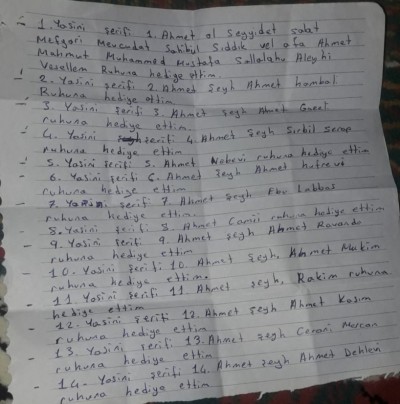 - 1. Yasini şerifi 1. Ahmet al Seyyidet saat
Mefgori Meucudat Sahibul Sıddık vel afa Ahmet
Mahmut Muhammed Mustafa Sallalahu Aleyhi
Vesellem Ruhuna hediye ettim.
- 2. Yasini şerifi 2. Ahmet Şeyh Ahmet hambali
Ruhuna hediye ettim
- 3. Yasini şerifi 3. Ahmet Şeyh
ruhuna hediye ettim.
- 4. Yasini şerifi 4. Ahmet Şeyh
ruhuna hediye ettim
- 5. Yasini şerifi 5. Ahmet Nebevi ruhuna hediye ettim
- 6. Yasini şerifi 6. Ahmet Şeyh Ahmet
ruhuna hediye ettim
- 7. Yasini şerifi 7. Ahmet Şeyh Ebu Labbas
ruhuna hediye ettim.
- 8. Yasini şerifi 8. Ahmet Camii ruhuna hediye ettim
- 9. Yasini şerifi 9. Ahmet şeyh Ahmet Ravando
ruhuna hediye ettim
- 10. Yasini şerifi 10. Ahmet Şeyh, Ahmet Mukim
ruhuna hediye ettim.
- 11. Yasini şerifi 11. Ahmet şeyh, Rakim ruhuna
hediye ettim
- 12. Yasini şerifi 12. Ahmet Şeyh Ahmet Kasım
ruhuna hediye ettim
- 13. Yasini şerifi 13. Ahmet şeyh Cerani Mercan
ruhuna hediye ettim
- 14- Yasini şerifi 14. Ahmet şeyh Ahmet Dehlevi
ruhuna hediye ettim